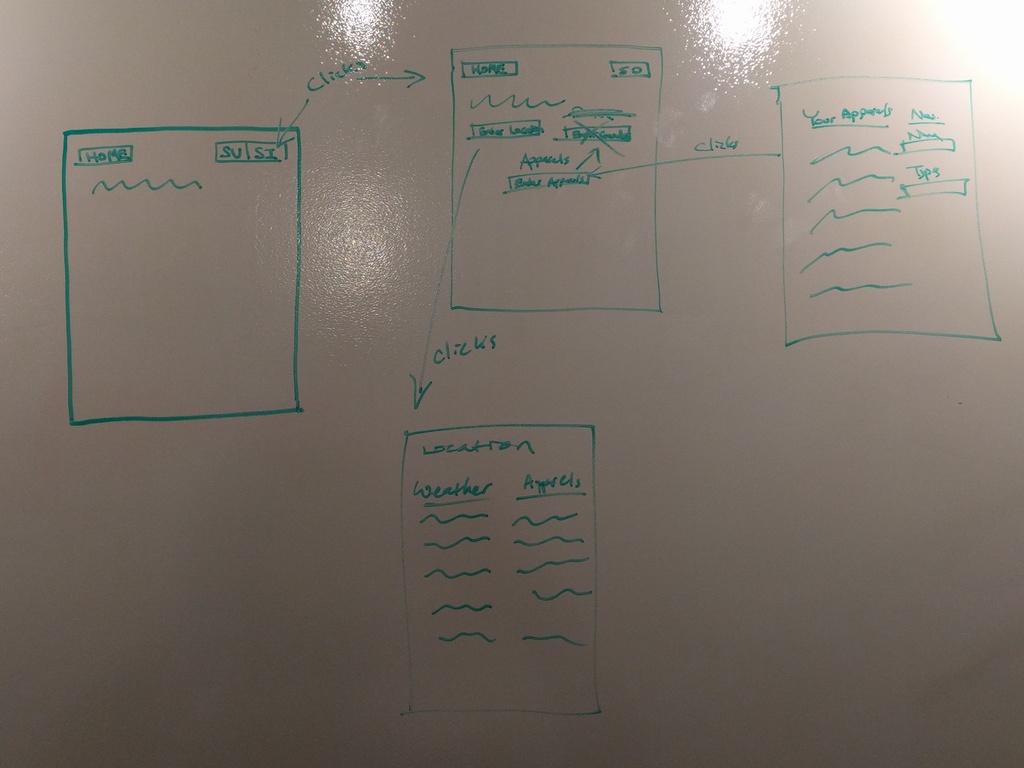 HOME
SU SI
clicks
HOME
SO
Enter Location
Apparels
Enter Apparels
clicks
Your Apparels
New
Type
clicks
LOCATION
Weather Apparels